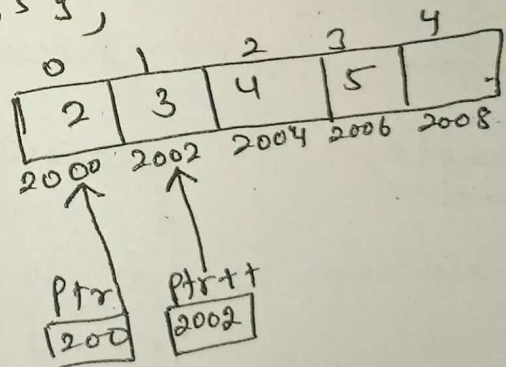 0 1 2 3 4
2 3 4 5
2000 2002 2004 2006 2008
Ptr Ptr++
200 2002